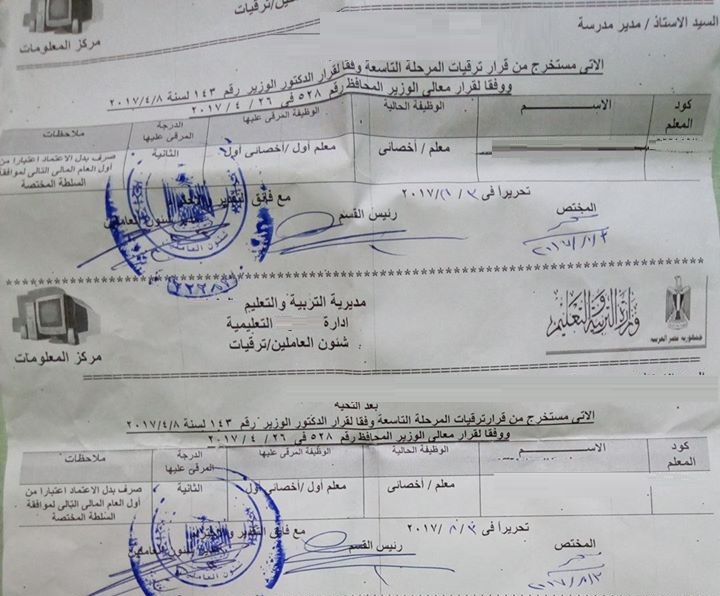 السيد الاستاذ / مدير مدرسة
عاملين/ترقيات
مركز المعلومات
الاتى مستخرج من قرار ترقيات المرحلة التاسعة وفقا لقرار الدكتور الوزير رقم ١٤٣ لسنة ٢٠١٧/٤/٨
ووفقا لقرار معالى الوزير المحافظ رقم ٥٢٨ فى ٢٦ / ٤ / ٢٠١٧
كود المعلم الاســـــــــم الوظيفة الحالية الوظيفة المرقى عليها الدرجة المرقى عليها ملاحظات
معلم / أخصائى معلم أول /أخصائى أول الثانية صرف بدل الاعتماد اعتبارا من
أول العام المالى التالى لموافقة
السلطة المختصة
تحريراً فى ٣ / /٢٠١٧
مع فائق التقدير
المختص رئيس القسم شئون العاملين
شئون العاملين
جمهورية مصر العربية
وزارة التربية والتعليم
مديرية التربية والتعليم
ادارة التعليمية
شئون العاملين/ترقيات
مركز المعلومات
بعد التحيه
الاتى مستخرج من قرارترقيات المرحلة التاسعة وفقا لقرار الدكتور الوزير رقم ١٤٣ لسنة ٢٠١٧/٤/٨
ووفقا لقرار معالى الوزير المحافظ رقم ٥٢٨ فى ٢٦ / ٤ / ٢٠١٧
كود المعلم الاســـــــــم الوظيفة الحالية الوظيفة المرقى عليها الدرجة المرقى عليها ملاحظات
معلم / أخصائى معلم أول /أخصائى أول الثانية صرف بدل الاعتماد اعتبارا من
أول العام المالى التالى لموافقة
السلطة المختصة
تحريراً فى ٣ / ٨ /٢٠١٧
مع فائق التقدير
المختص رئيس القسم شئون العاملين
شئون العاملين